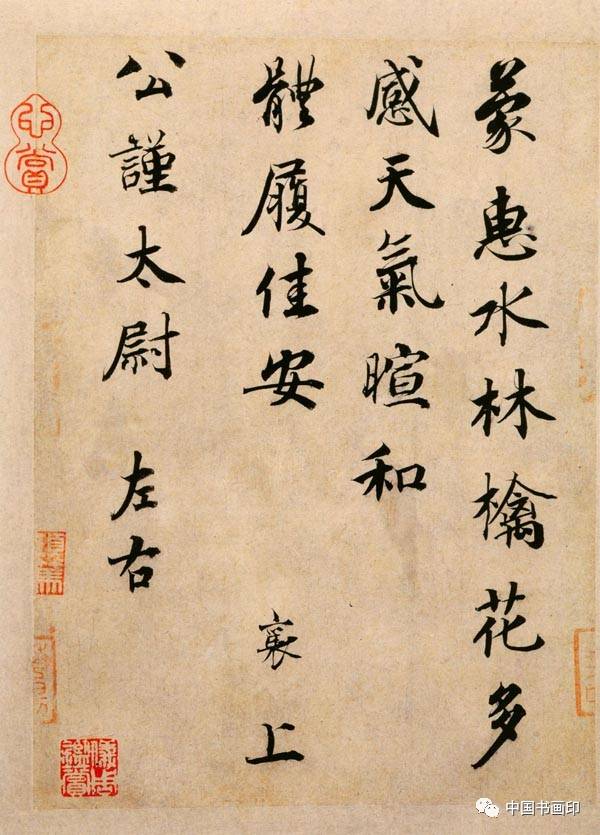 蒙惠水林檎花多
感天氣暄和
體履佳安 襄 上
公謹太尉 左右
中国书画印